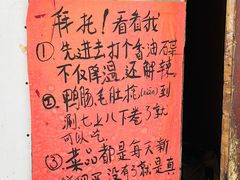 拜托！看看我
① 先进去打个香油碟
不仅降温 还解辣
② 鸭肠、毛肚捻到
涮七上八下卷了就
可以吃
③ 菜品都是每天新
没有了就是真